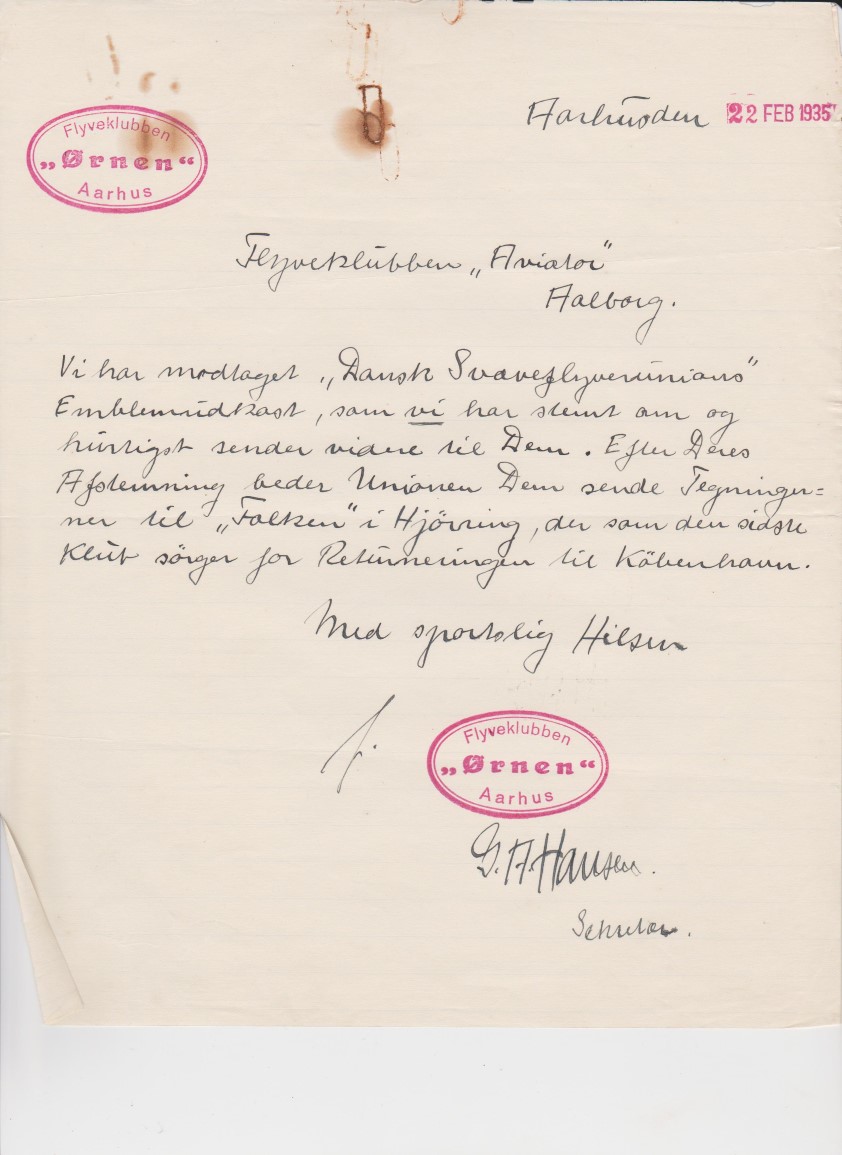 Flyveklubben
„Ørnen“
Aarhus
Aarhus den 22 FEB 1935
Flyveklubben „Aviator“
Aalborg.
Vi har modtaget „Dansk Svæveflyverunions“
Emblemudkast, som vi har stemt om og
hurtigst sender videre til Dem. Efter Deres
Afstemning beder Unionen Dem sende Tegninger=
ner til „Falken“ i Hjörring, der som den sidste
Klub sörger for Returneringen til Köbenhavn.
Med sportslig Hilsen
f.
Flyveklubben
„Ørnen“
Aarhus
G. A. Hansen.
Sekretær.